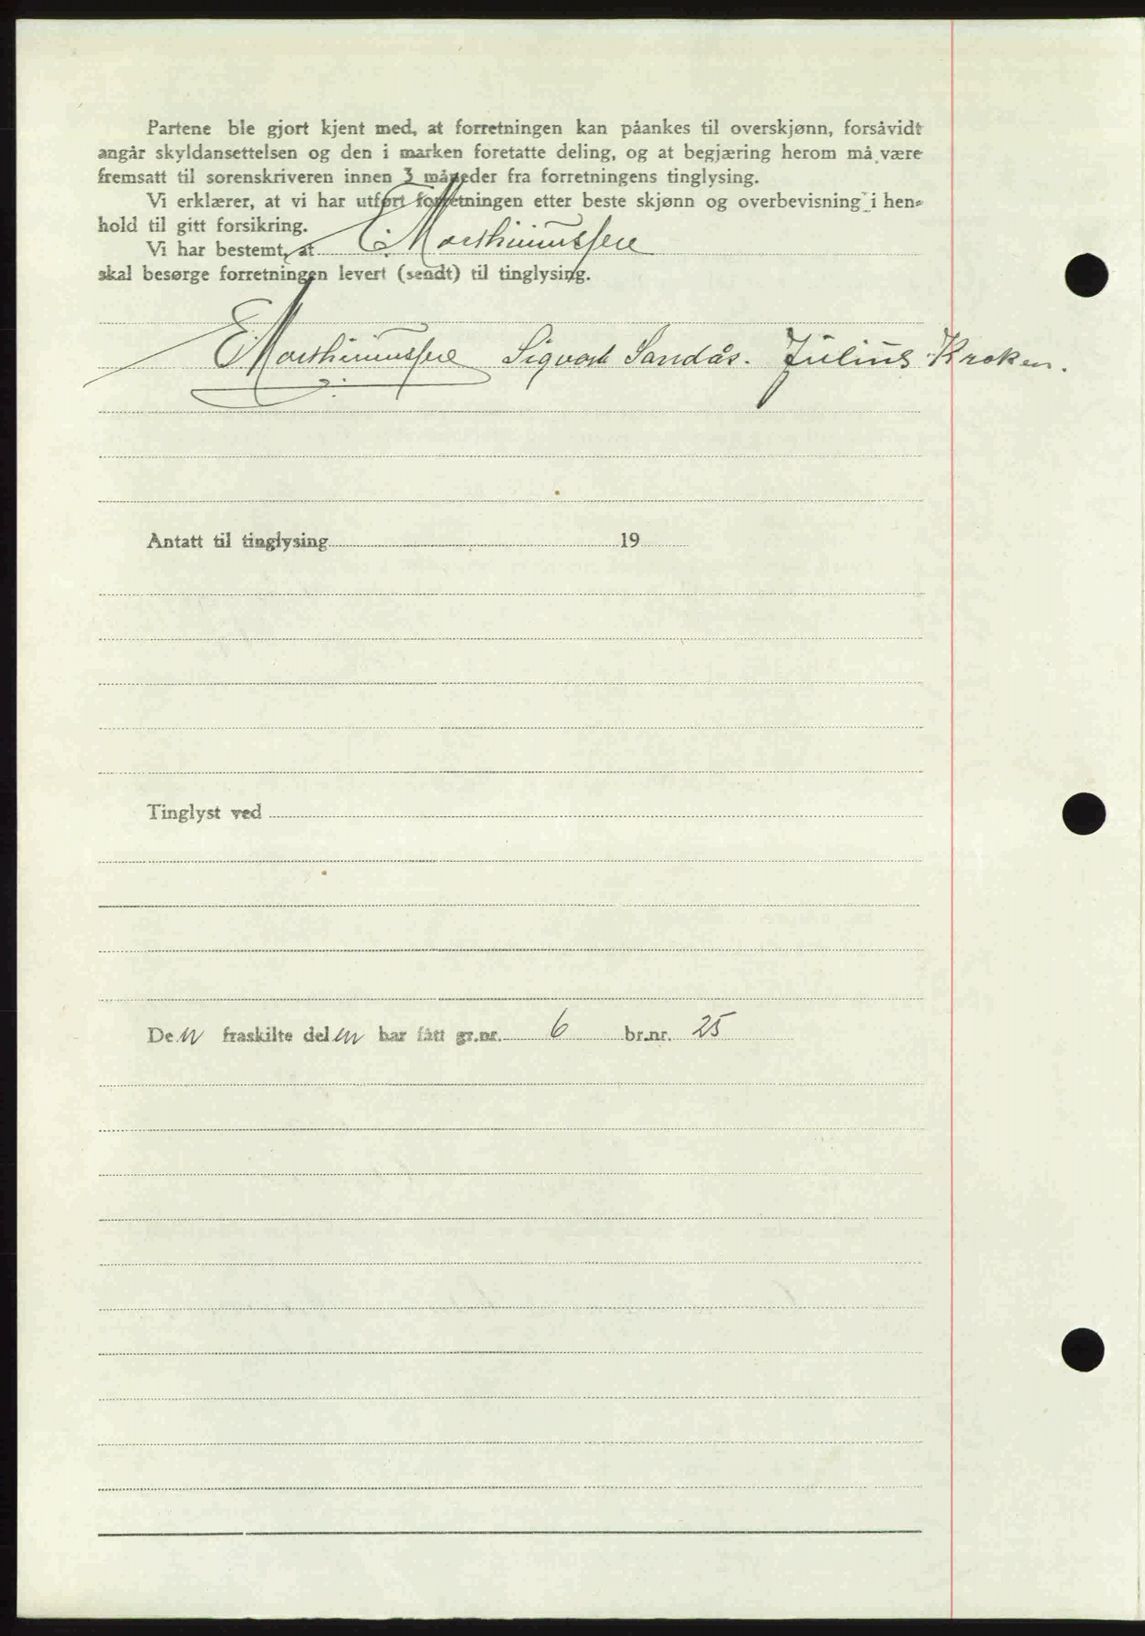 Partene ble gjort kjent med, at forretningen kan påankes til overskjønn, forsåvidt
angår skyldansettelsen og den i marken foretatte deling, og at begjæring herom må være
fremsatt til sorenskriveren innen 3 måneder fra forretningens tinglysing.
Vi erklærer, at vi har utført forretningen etter beste skjønn og overbevisning i hen-
hold til gitt forsikring.
Vi har bestemt, at E. Morthinussen
skal besørge forretningen levert (sendt) til tinglysing.
E. Morthinussen Sigvart Sandås. Julius Kroken.
Antatt til tinglysing 19
Tinglyst ved
Den fraskilte delen har fått gr.nr. 6 br.nr. 25